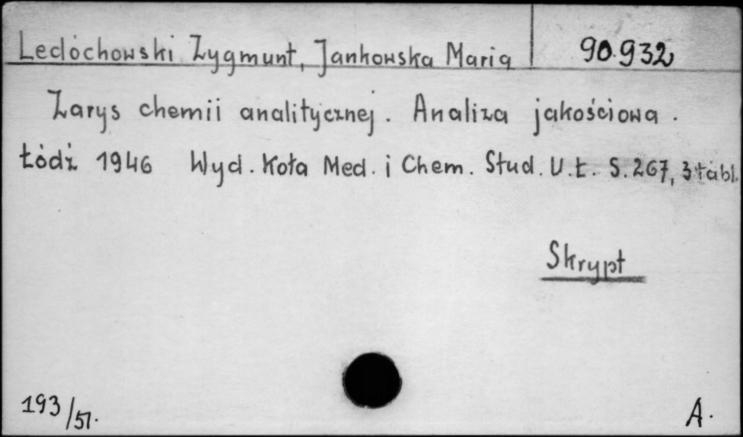 Ledóchowski Zygmunt, Jankowska Maria 90.932
Zarys chemii analitycznej. Analiza jakościowa.
Łódź 1946 Wyd. Koła Med. i Chem. Stud. U.Ł. S. 267, 3 tabl.
Skrypt
193/51. A.